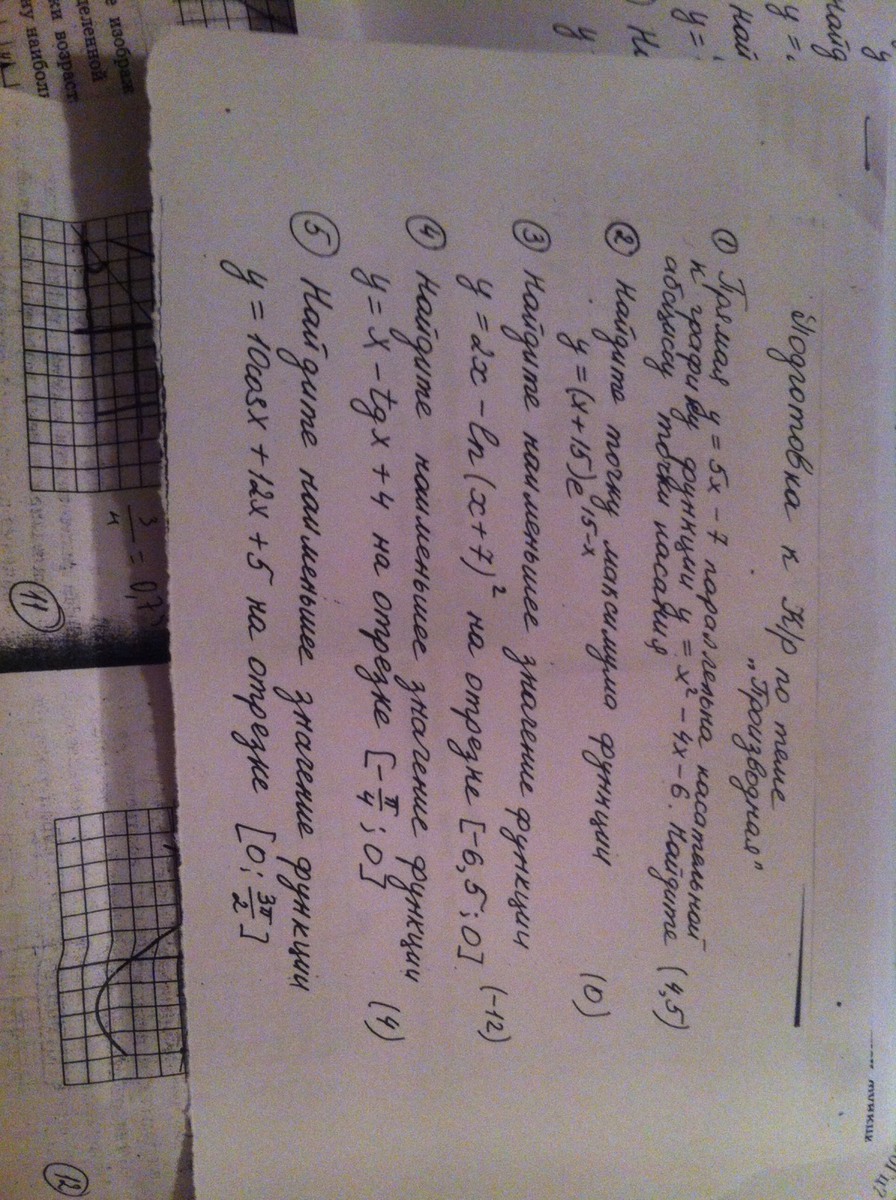 Подготовка к К/р по теме
„Производная"
① Прямая y = 5x - 7 параллельна касательной
к графику функции y = x² - 4x - 6. Найдите
абсциссу точки касания (4,5)
② Найдите точку максимума функции
y = (x + 15)e^15-x (0)
③ Найдите наименьшее значение функции
y = 2x - ln(x + 7)² на отрезке [-6,5 ; 0] (-12)
④ Найдите наименьшее значение функции
y = x - tg x + 4 на отрезке [-π/4 ; 0] (4)
⑤ Найдите наименьшее значение функции
y = 10cos x + 12x + 5 на отрезке [0 ; 3π/2]
е изображ
деленной
ки возраст
ну наибол
11
12
найд
y =
най
y =
y